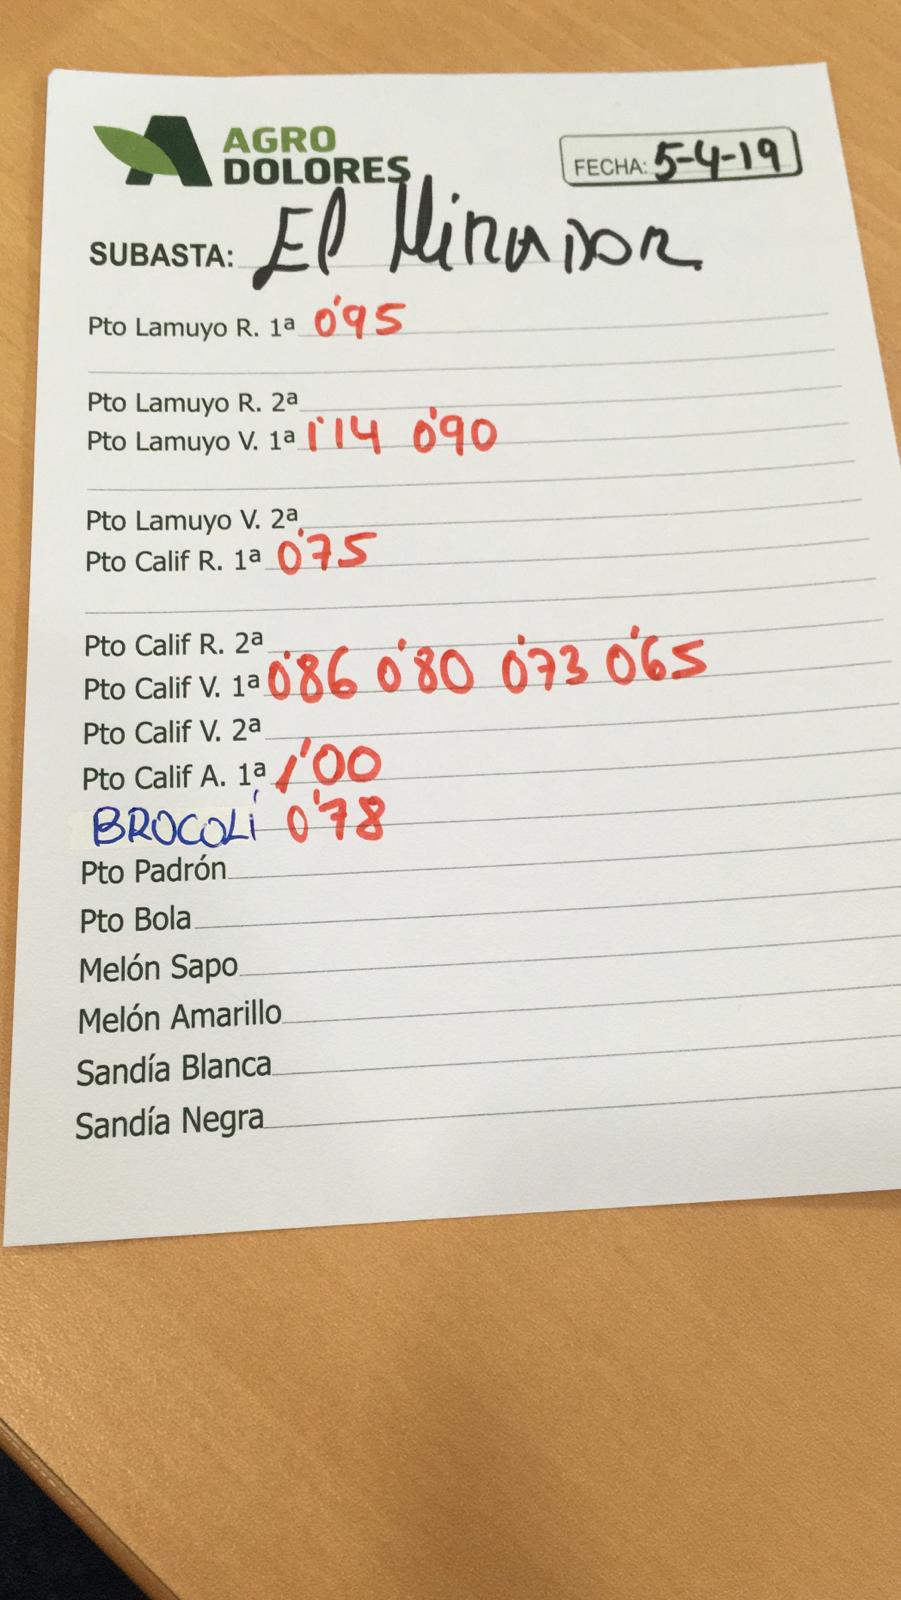 AGRO
DOLORES
FECHA: 5-4-19
SUBASTA: El Mirador
Pto Lamuyo R. 1ª 0'95
Pto Lamuyo R. 2ª
Pto Lamuyo V. 1ª 1'14 0'90
Pto Lamuyo V. 2ª
Pto Calif R. 1ª 0'75
Pto Calif R. 2ª
Pto Calif V. 1ª 0'86 0'80 0'73 0'65
Pto Calif V. 2ª
Pto Calif A. 1ª 1'00
BROCOLÍ 0'78
Pto Padrón
Pto Bola
Melón Sapo
Melón Amarillo
Sandía Blanca
Sandía Negra